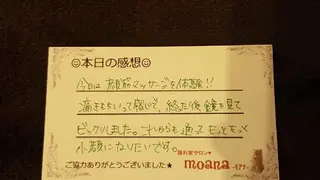 ☺本日の感想☺
今日は顔筋マッサージを体験!!
痛きもちいって感じで、終った後鏡を見て
ビックリしました。これからも通ってもっともっと
小顔になりたいです。
隠れ家サロン♥
ご協力ありがとうございました★ moana-モアナ-